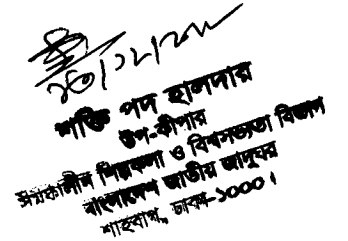 শক্তি পদ হালদার
উপ-কীপার
সমকালীন শিল্পকলা ও বিশ্বসভ্যতা বিভাগ
বাংলাদেশ জাতীয় জাদুঘর
শাহবাগ, ঢাকা-১০০০।